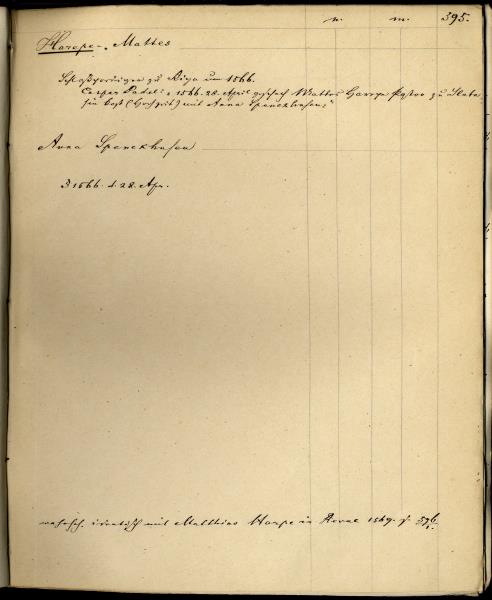 n. m. 395.
Harpe, Mattes
Schloßprediger zu Riga um 1566.
Caspar Padel: „1566. 28. April geschach Mattes Harpe Pastor zu
sin kost (Hochzeit) mit Anna Spenckhusen“
Anna Spenckhusen
3 1566. d. 28. Apr.
wahrsch. identisch mit Matthias Harpe in Reval 1569. f 396.